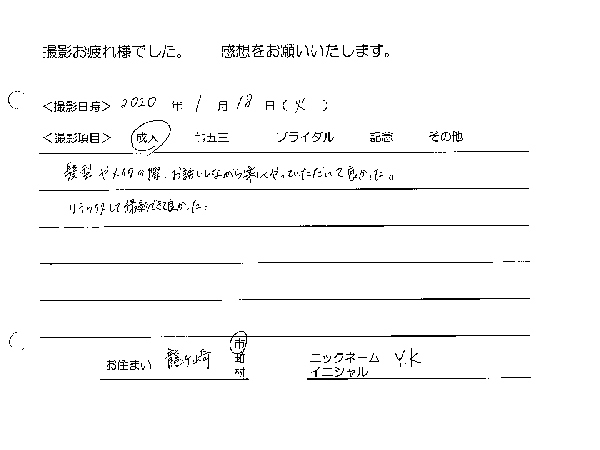 撮影お疲れ様でした。 感想をお願いいたします。
＜撮影日時＞ 2020 年 1 月 18 日 (火)
＜撮影項目＞ 成人 七五三 ブライダル 記念 その他
髪型やメイクの際、お話ししながら楽しくやっていただいて良かった。
リラックスして撮影できて良かった。
お住まい 龍ヶ崎 市 町 村
ニックネーム イニシャル Y.K